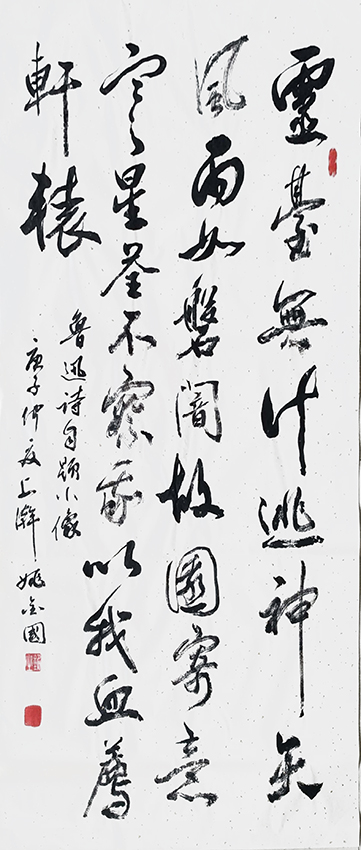 靈臺無計逃神矢
風雨如磐闇故園寄意
寒星荃不察我以我血薦
軒轅
魯迅詩自題小像
庚子仲夏上澣 姚金國